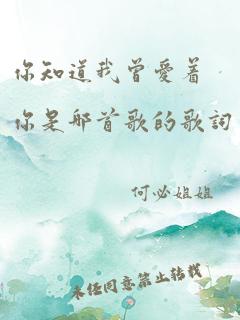 你知道我曾愛着
你是那首歌的歌詞
何必姐姐
未经同意禁止转载